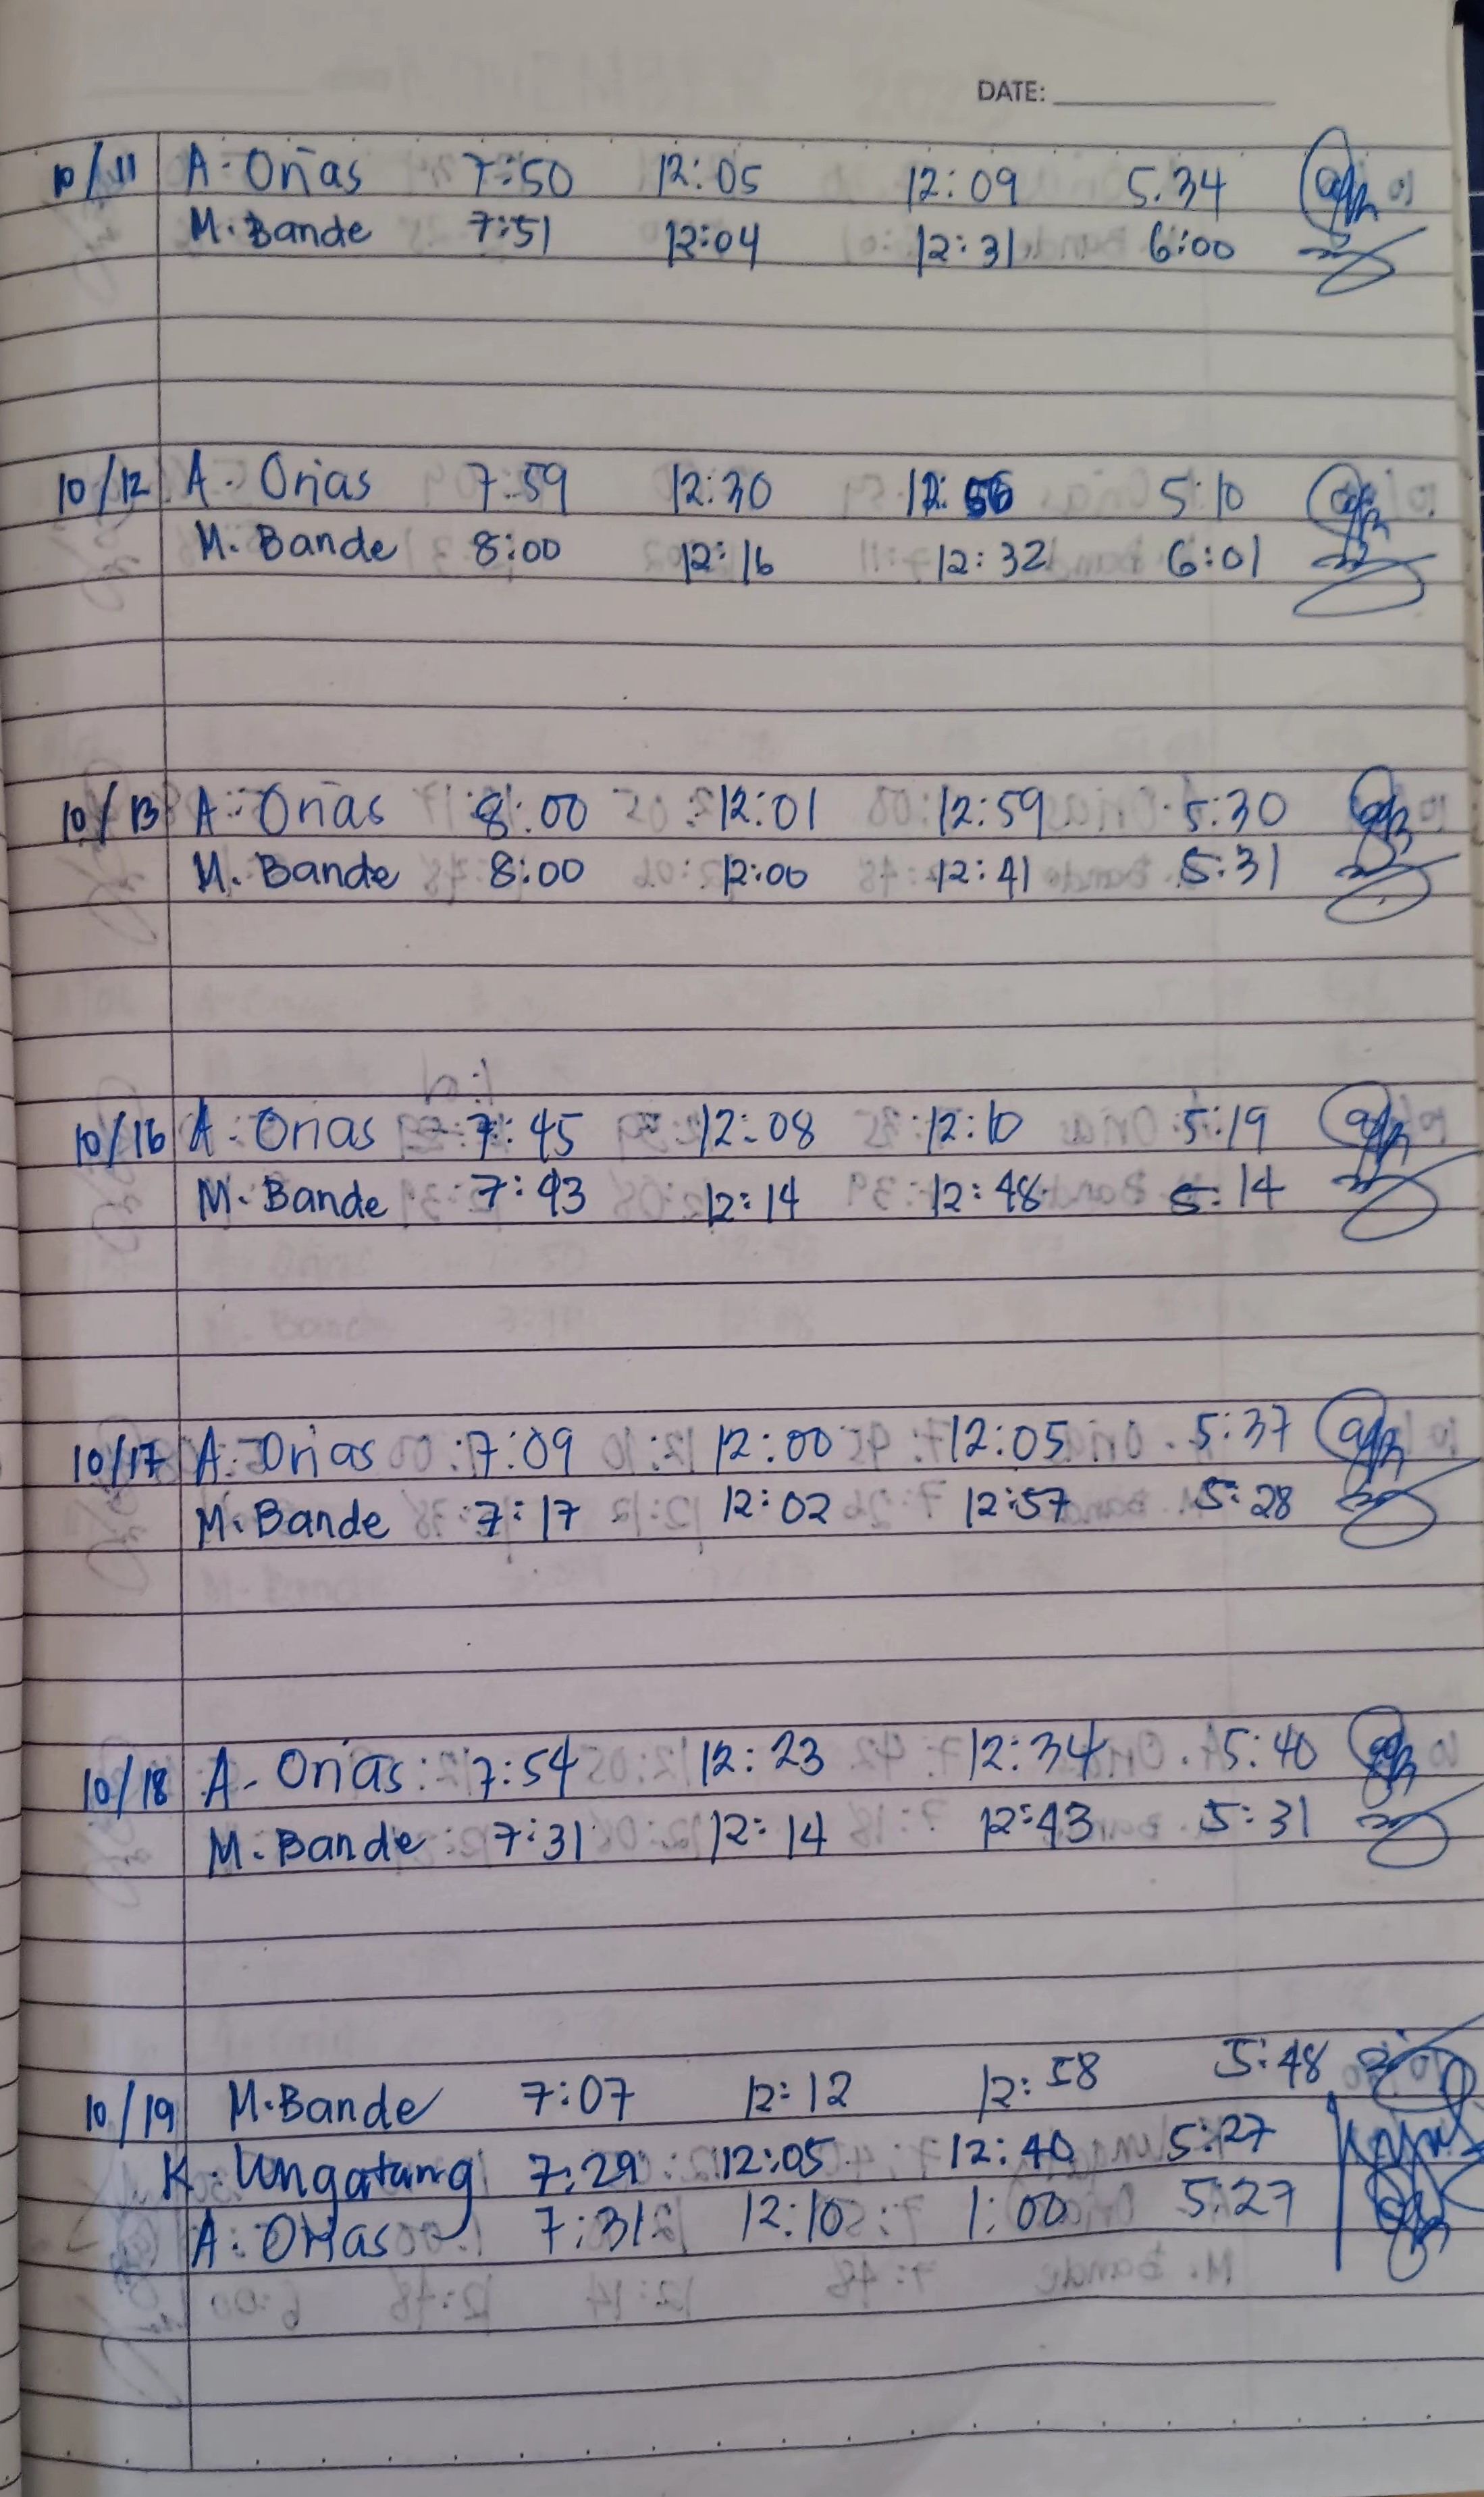 DATE:
10/11 A. Oñas 7:50 12:05 12:09 5.34
M. Bande 7:51 12:04 12:31 6:00
10/12 A. Oñas 7:59 12:30 12:56 5:10
M. Bande 8:00 12:16 12:32 6:01
10/13 A. Oñas 8:00 12:01 12:59 5:30
M. Bande 8:00 12:00 12:41 5:31
10/16 A. Oñas 7:45 12:08 12:10 5:19
M. Bande 7:43 12:14 12:48 5:14
10/17 A. Oñas 7:09 12:00 12:05 5:37
M. Bande 7:17 12:02 12:57 5:28
10/18 A. Oñas 7:54 12:23 12:34 5:40
M. Bande 7:31 12:14 12:43 5:31
10/19 M. Bande 7:07 12:12 12:58 5:48
K. 7:29 12:05 12:40 5:27
A. Oñas 7:31 12:10 1:00 5:27